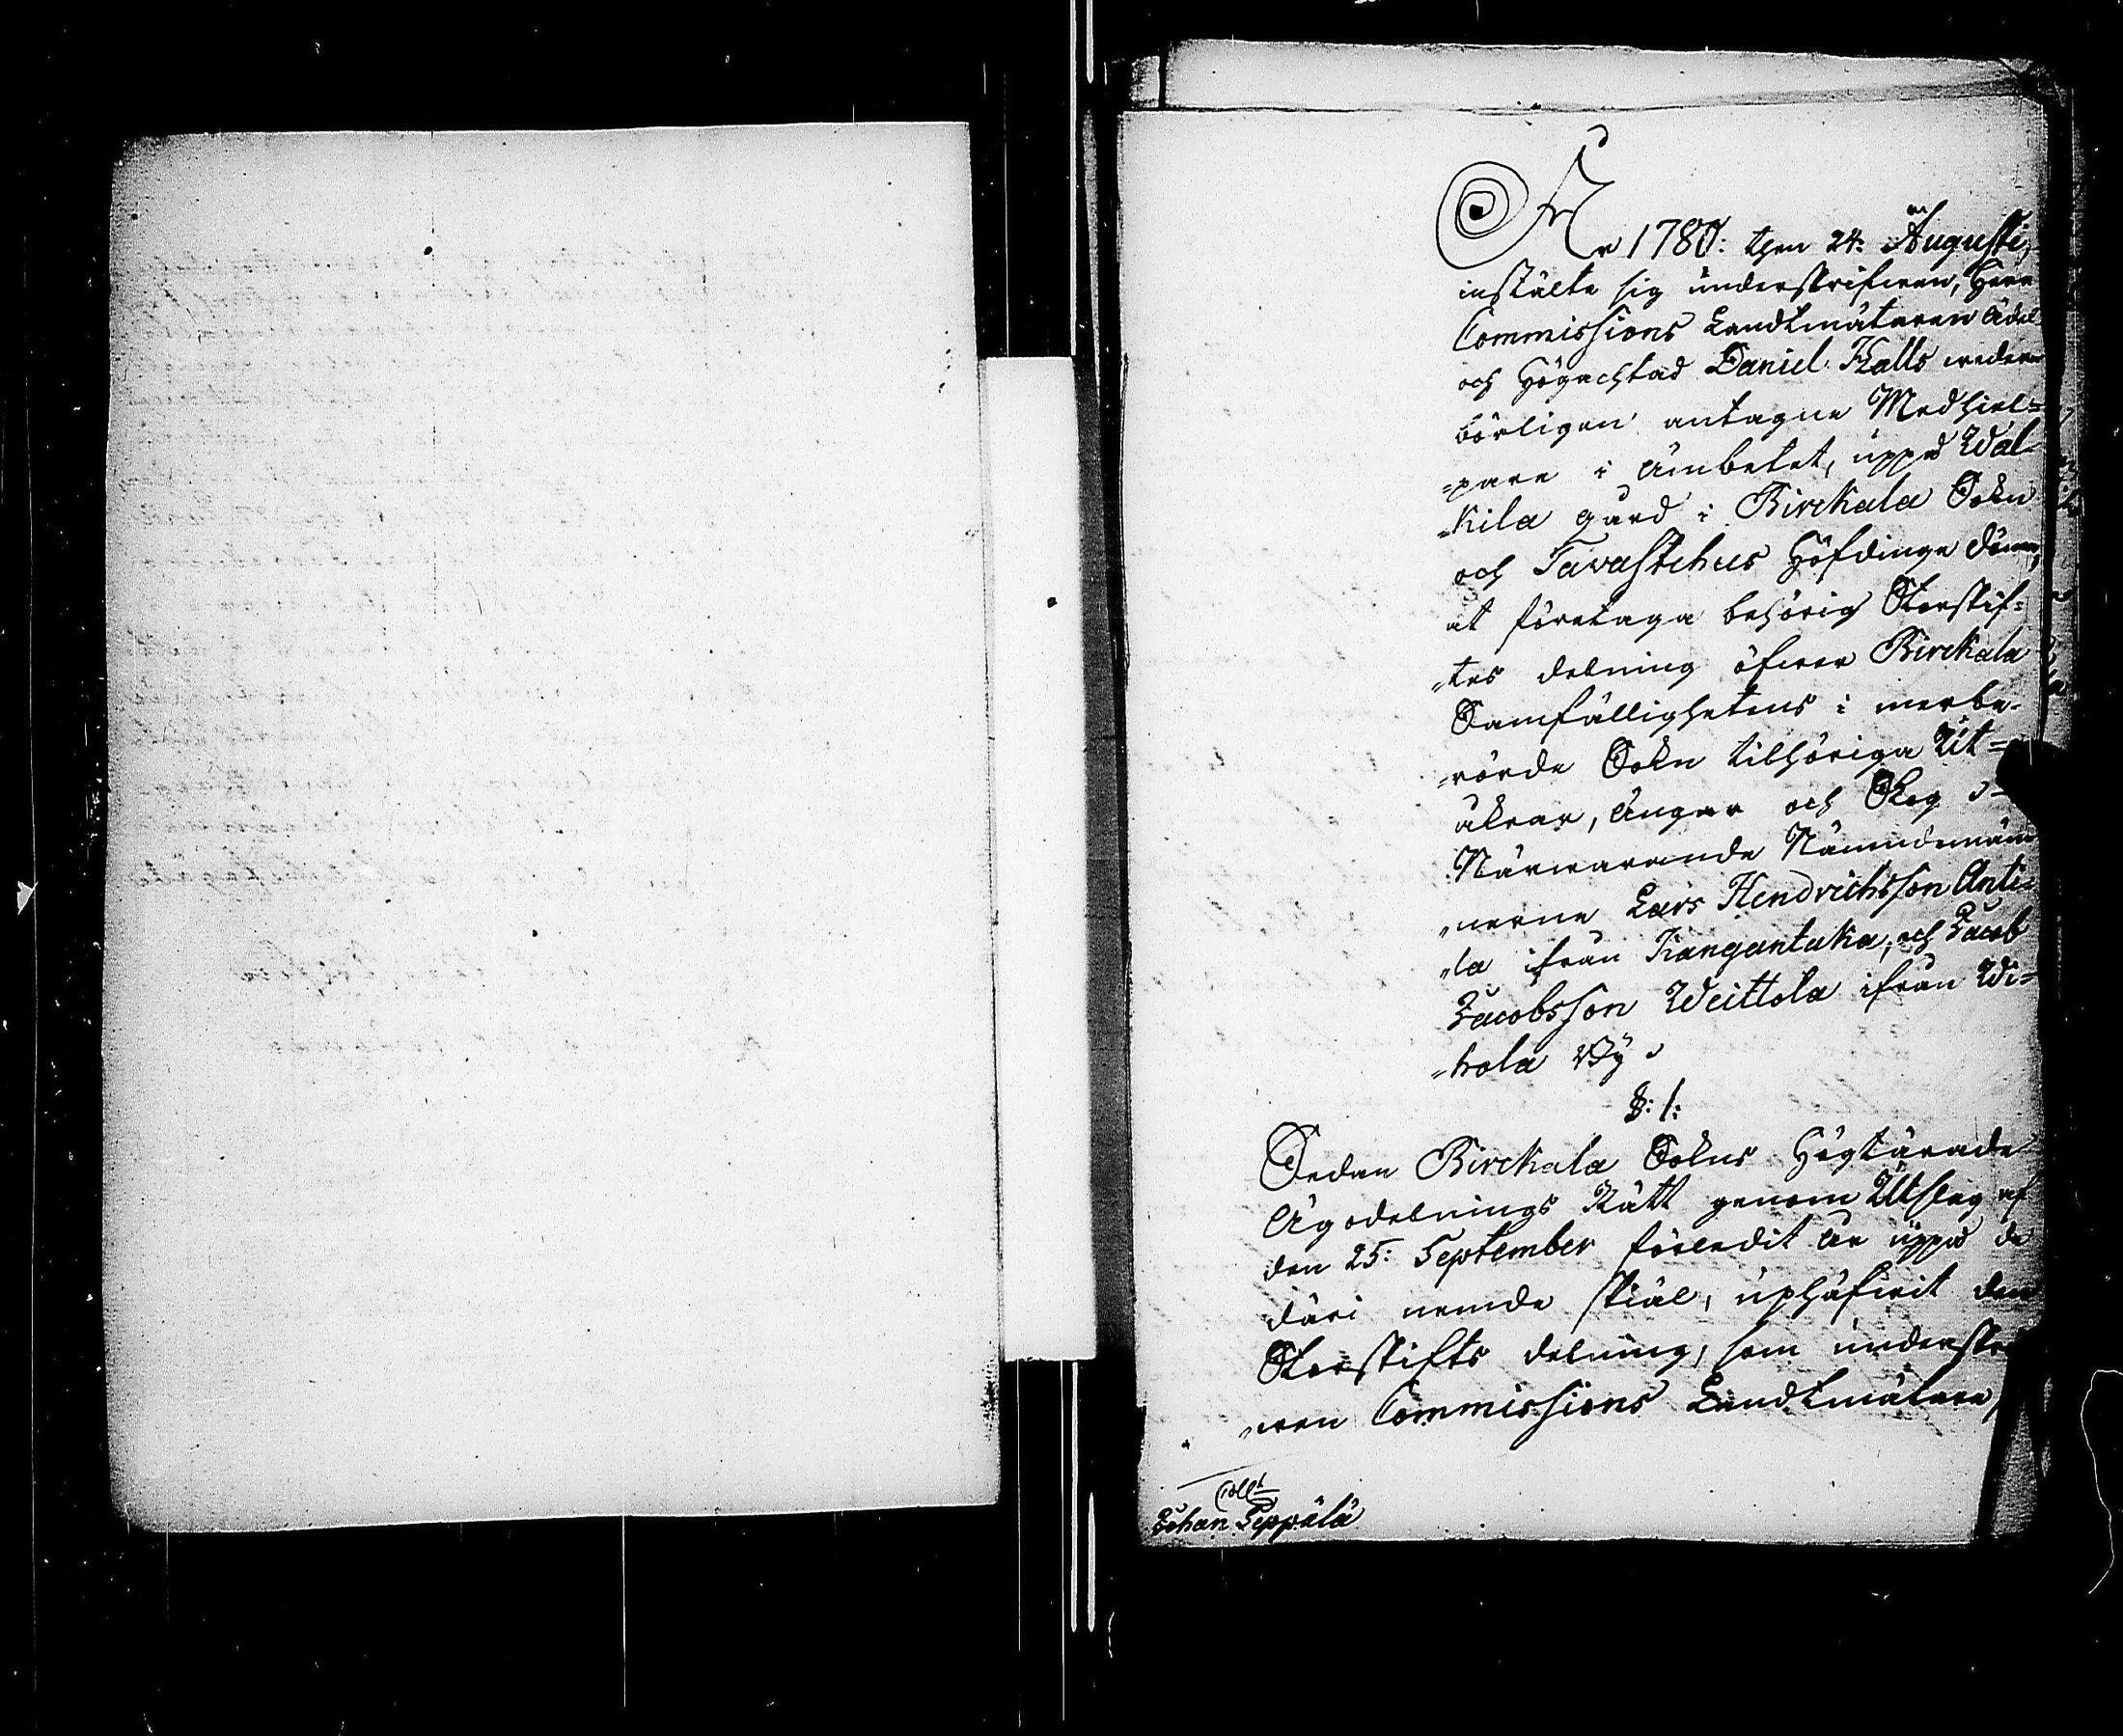 År 1780: then 24: Augusti,
instälte sig underskrifwen, Herr
Commissions Landtmätaren Ädel
och Högachtad Daniel Halls weder=
börligen antagne Medhiel=
=pare i Ämbetet, uppå Wal=
=kila gård i Birckala Sokn
och Tavastehus Höfdinge döme,
at företaga behörig Storskif=
=tes delning öfwer Birckala
Samfällighetens i merbe=
=rörde Sokn tilhöriga Ut=
åkrar, Ängar och Skog
Närwarande Nämndemän=
=nerne Lars Hendrichsson Anti=
=la ifrån Kangantaka, och Jacob
Jacobsson Weittola ifrån Wi=
=hola By
§: 1:
Sedan Birckala Sokns Högtärade
Ägodelnings Rätt genom Utslag af
den 25: September förledit år uppå de
däri nemde skiäl, uphäfwit den
Storskifts delning, som underskre
=wen Commissions Landtmätare,
Coll:
Johan Seppälä